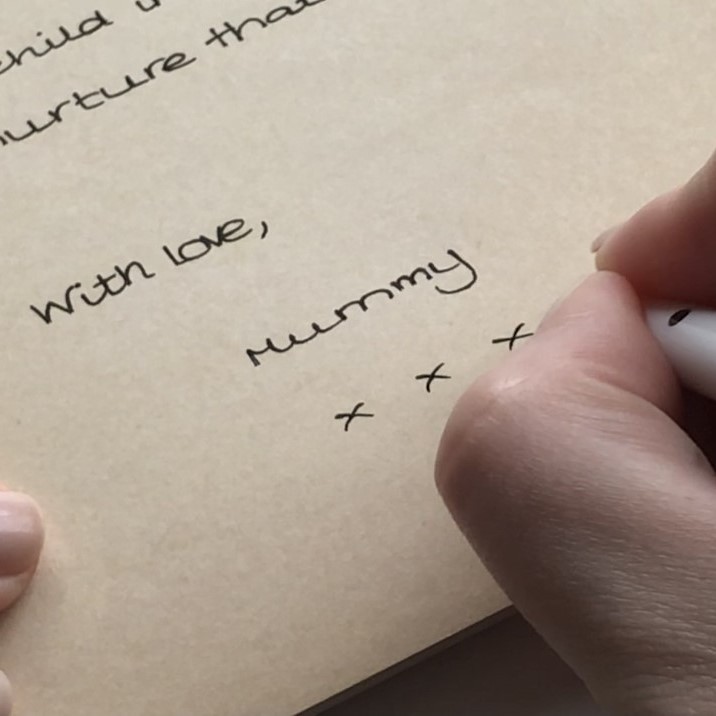 child
nurture that
With love,
Mummy
x x x